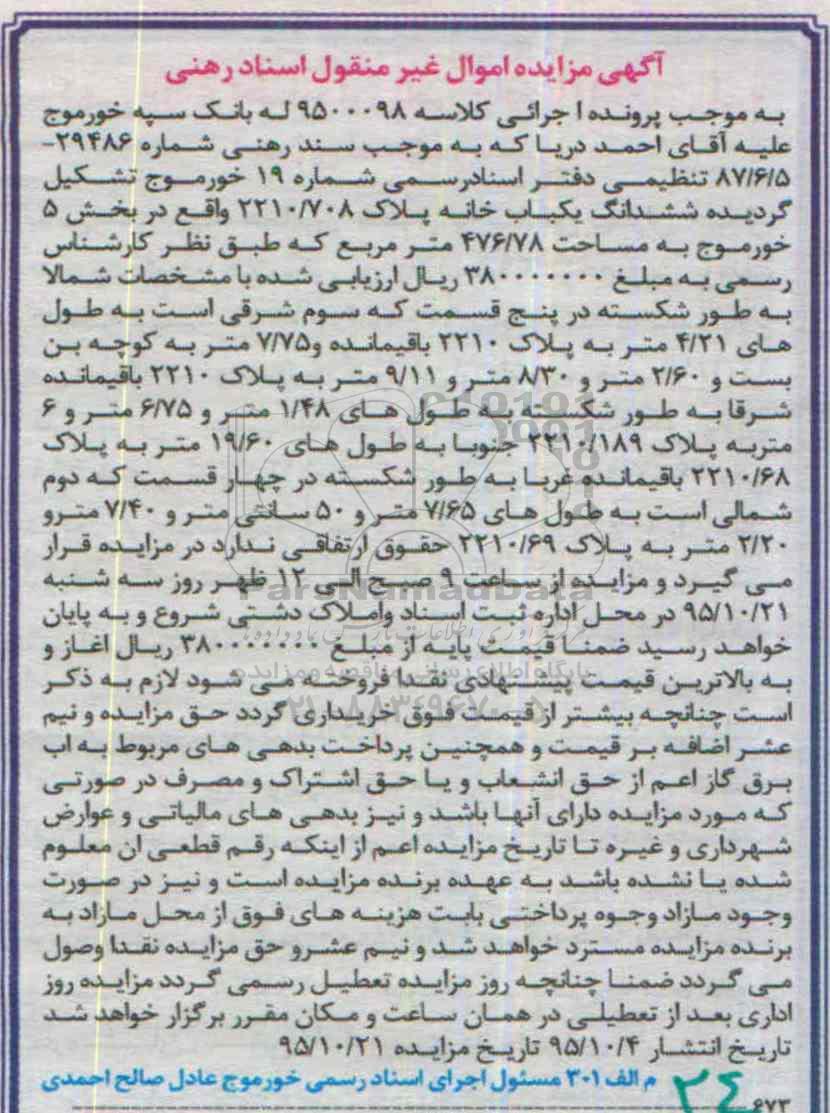 آگهی مزایده اموال غیر منقول اسناد رهنی
به موجب پرونده اجرائی کلاسه ۹۵۰۰۰۹۸ له بانک سپه خورموج
علیه آقای احمد دریا که به موجب سند رهنی شماره ۲۹۴۸۶-
۸۷/۶/۵ تنظیمی دفتر اسنادرسمی شماره ۱۹ خورموج تشکیل
گردیده ششدانگ یکباب خانه پلاک ۲۲۱۰/۷۰۸ واقع در بخش ۵
خورموج به مساحت ۴۷۶/۷۸ متر مربع که طبق نظر کارشناس
رسمی به مبلغ ۳۸۰۰۰۰۰۰۰۰ ریال ارزیابی شده با مشخصات شمالا
به طور شکسته در پنج قسمت که سوم شرقی است به طول
های ۴/۲۱ متر به پلاک ۲۲۱۰ باقیمانده و۷/۷۵ متر به کوچه بن
بست و ۲/۶۰ متر و ۸/۳۰ متر و ۹/۱۱ متر به پلاک ۲۲۱۰ باقیمانده
شرقا به طور شکسته به طول های ۱/۴۸ متر و ۶/۷۵ متر و ۶
متربه پلاک ۲۲۱۰/۱۸۹ جنوبا به طول های ۱۹/۶۰ متر به پلاک
۲۲۱۰/۶۸ باقیمانده غربا به طور شکسته در چهار قسمت که دوم
شمالی است به طول های ۷/۶۵ متر و ۵۰ سانتی متر و ۷/۴۰ مترو
۲/۲۰ متر به پلاک ۲۲۱۰/۶۹ حقوق ارتفاقی ندارد در مزایده قرار
می گیرد و مزایده از ساعت ۹ صبح الی ۱۲ ظهر روز سه شنبه
۹۵/۱۰/۲۱ در محل اداره ثبت اسناد واملاک دشتی شروع و به پایان
خواهد رسید ضمنا قیمت پایه از مبلغ ۳۸۰۰۰۰۰۰۰۰ ریال اغاز و
به بالاترین قیمت پیشنهادی نقدا فروخته می شود لازم به ذکر
است چنانچه بیشتر از قیمت فوق خریداری گردد حق مزایده و نیم
عشر اضافه بر قیمت و همچنین پرداخت بدهی های مربوط به اب
برق گاز اعم از حق انشعاب و یا حق اشتراک و مصرف در صورتی
که مورد مزایده دارای آنها باشد و نیز بدهی های مالیاتی و عوارض
شهرداری و غیره تا تاریخ مزایده اعم از اینکه رقم قطعی ان معلوم
شده یا نشده باشد به عهده برنده مزایده است و نیز در صورت
وجود مازاد وجوه پرداختی بابت هزینه های فوق از محل مازاد به
برنده مزایده مسترد خواهد شد و نیم عشرو حق مزایده نقدا وصول
می گردد ضمنا چنانچه روز مزایده تعطیل رسمی گردد مزایده روز
اداری بعد از تعطیلی در همان ساعت و مکان مقرر برگزار خواهد شد
تاریخ انتشار ۹۵/۱۰/۴ تاریخ مزایده ۹۵/۱۰/۲۱
م الف ۳۰۱ مسئول اجرای اسناد رسمی خورموج عادل صالح احمدی
۶۷۳
ParsNamadData
پایگاه اطلاع رسانی مناقصه و مزایده